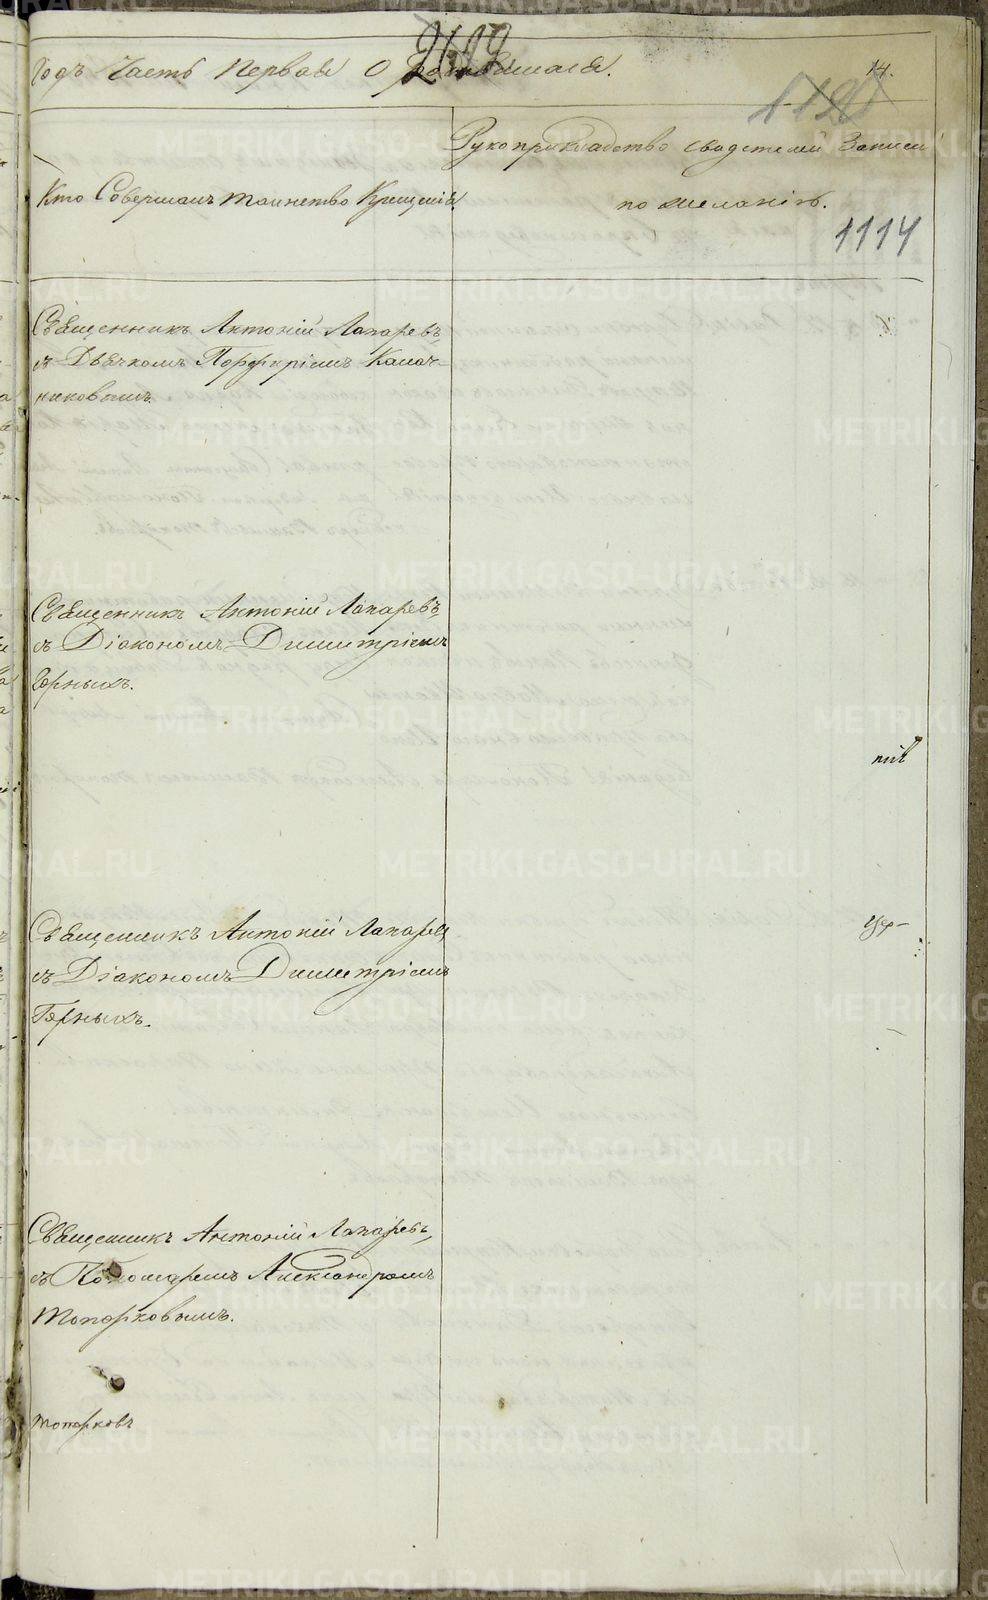 Годъ Часть Первая О родившихся.
14.
1114
Рукоприкладство свидетелей Записи
по желанію.
Кто Совершалъ таинство Крещенія.
Священникъ Антоній Лапаревъ,
съ Дьячкомъ Порфиріемъ Калач-
никовымъ.
Священникъ Антоній Лапаревъ,
съ Діакономъ Димитріемъ
Горныхъ.
Священникъ Антоній Лапаревъ,
съ Діакономъ Димитріемъ
Горныхъ.
Священникъ Антоній Лапаревъ,
съ Пономаремъ Александромъ
Топорковымъ.
Топорковъ
METRIKI.GASO-URAL.RU